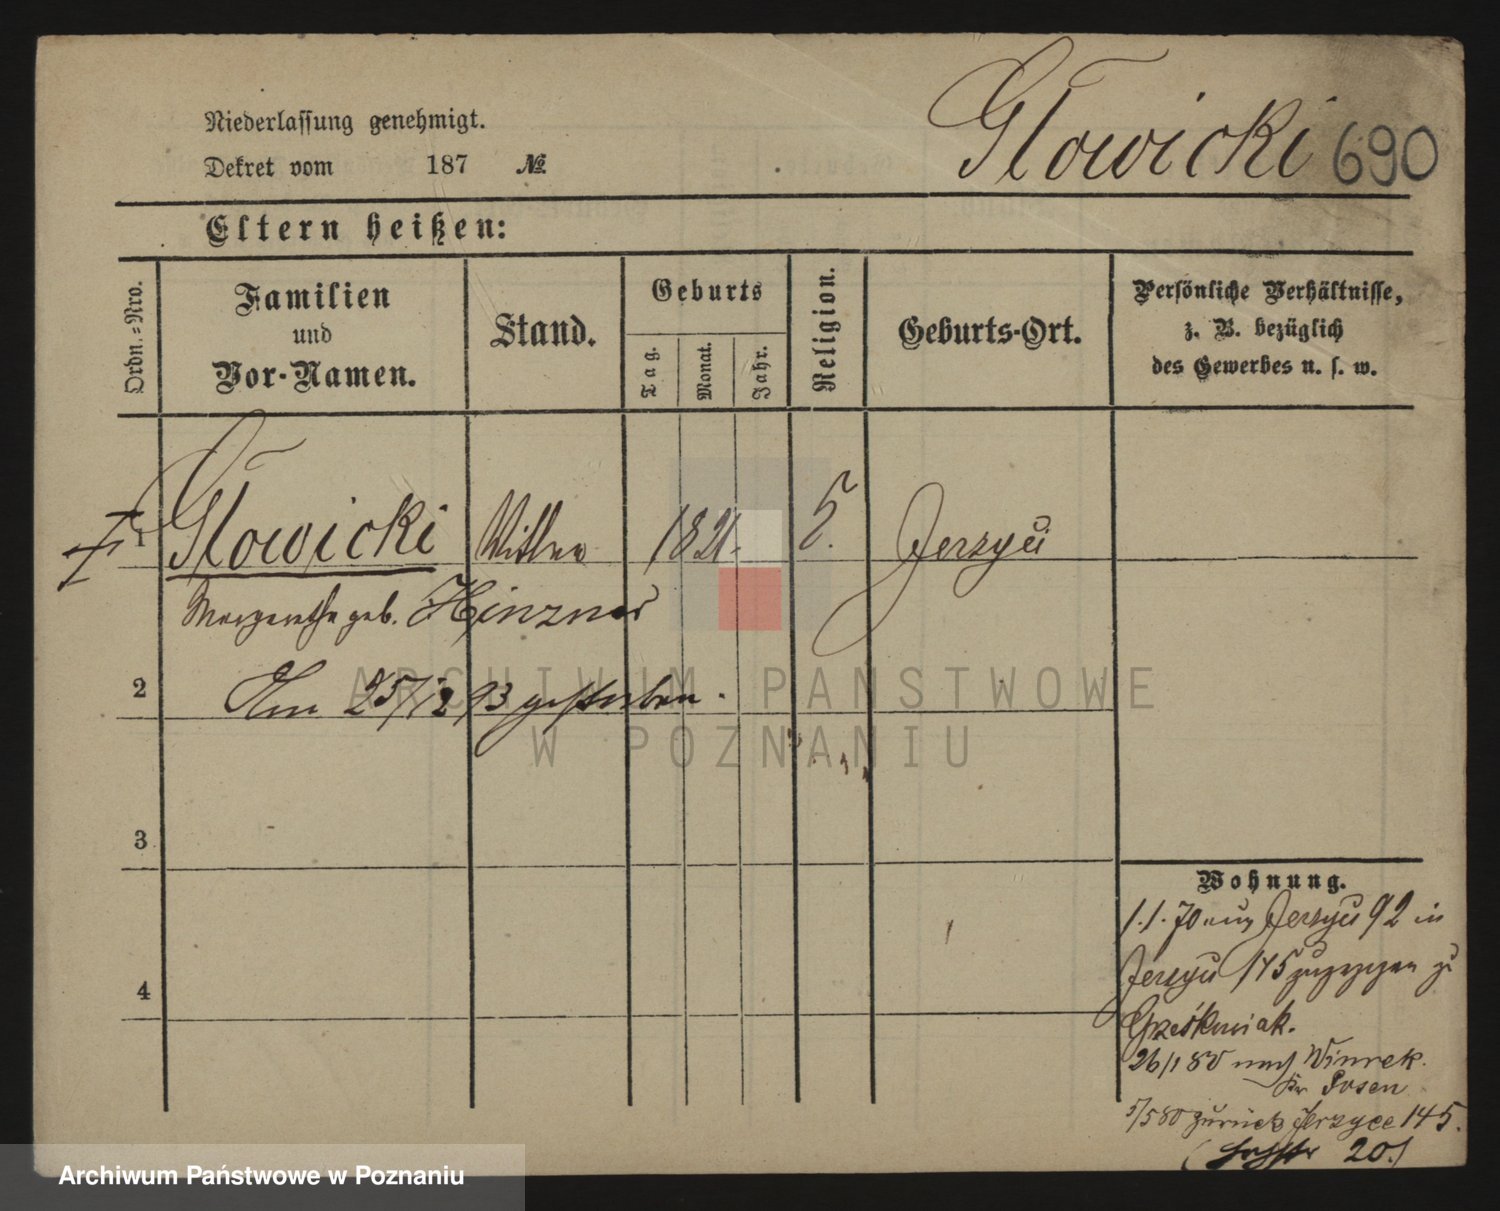 Niederlassung genehmigt.
Dekret vom 187 №
Głowicki 690
Eltern heißen:
Ordn.=Nro.
Familien
und
Vor-Namen.
Stand.
Geburts
Tag.
Monat.
Jahr.
Religion.
Geburts-Ort.
Persönliche Verhältnisse,
z. B. bezüglich
des Gewerbes u. s. w.
1 Głowicki 1821. Jerzyü
geb. Hinzner
2 Am 25/12 93 gestorben.
3
4
Wohnung.
1.1.70 aus Jerzyü 92 in
Jerzyü 145 zugezogen zu
Grześkowiak.
26/1 80 nach Winrek.
Kr Posen
5/5 80 zurück Jerzyce 145.
20.)
ARCHIWUM PAŃSTWOWE
W POZNANIU
Archiwum Państwowe w Poznaniu